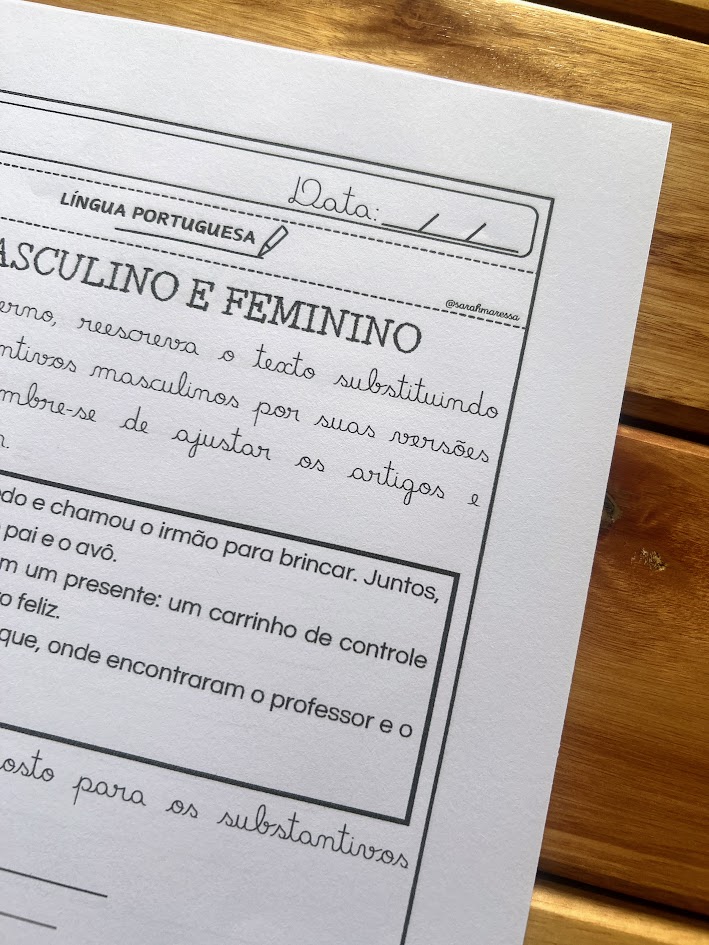 Data: __/__/__
LÍNGUA PORTUGUESA
@sarahmaressa
ASCULINO E FEMININO
erno, reescreva o texto substituindo
ntivos masculinos por suas versões
mbre-se de ajustar os artigos e
do e chamou o irmão para brincar. Juntos,
pai e o avô.
m um presente: um carrinho de controle
o feliz.
que, onde encontraram o professor e o
osto para os substantivos